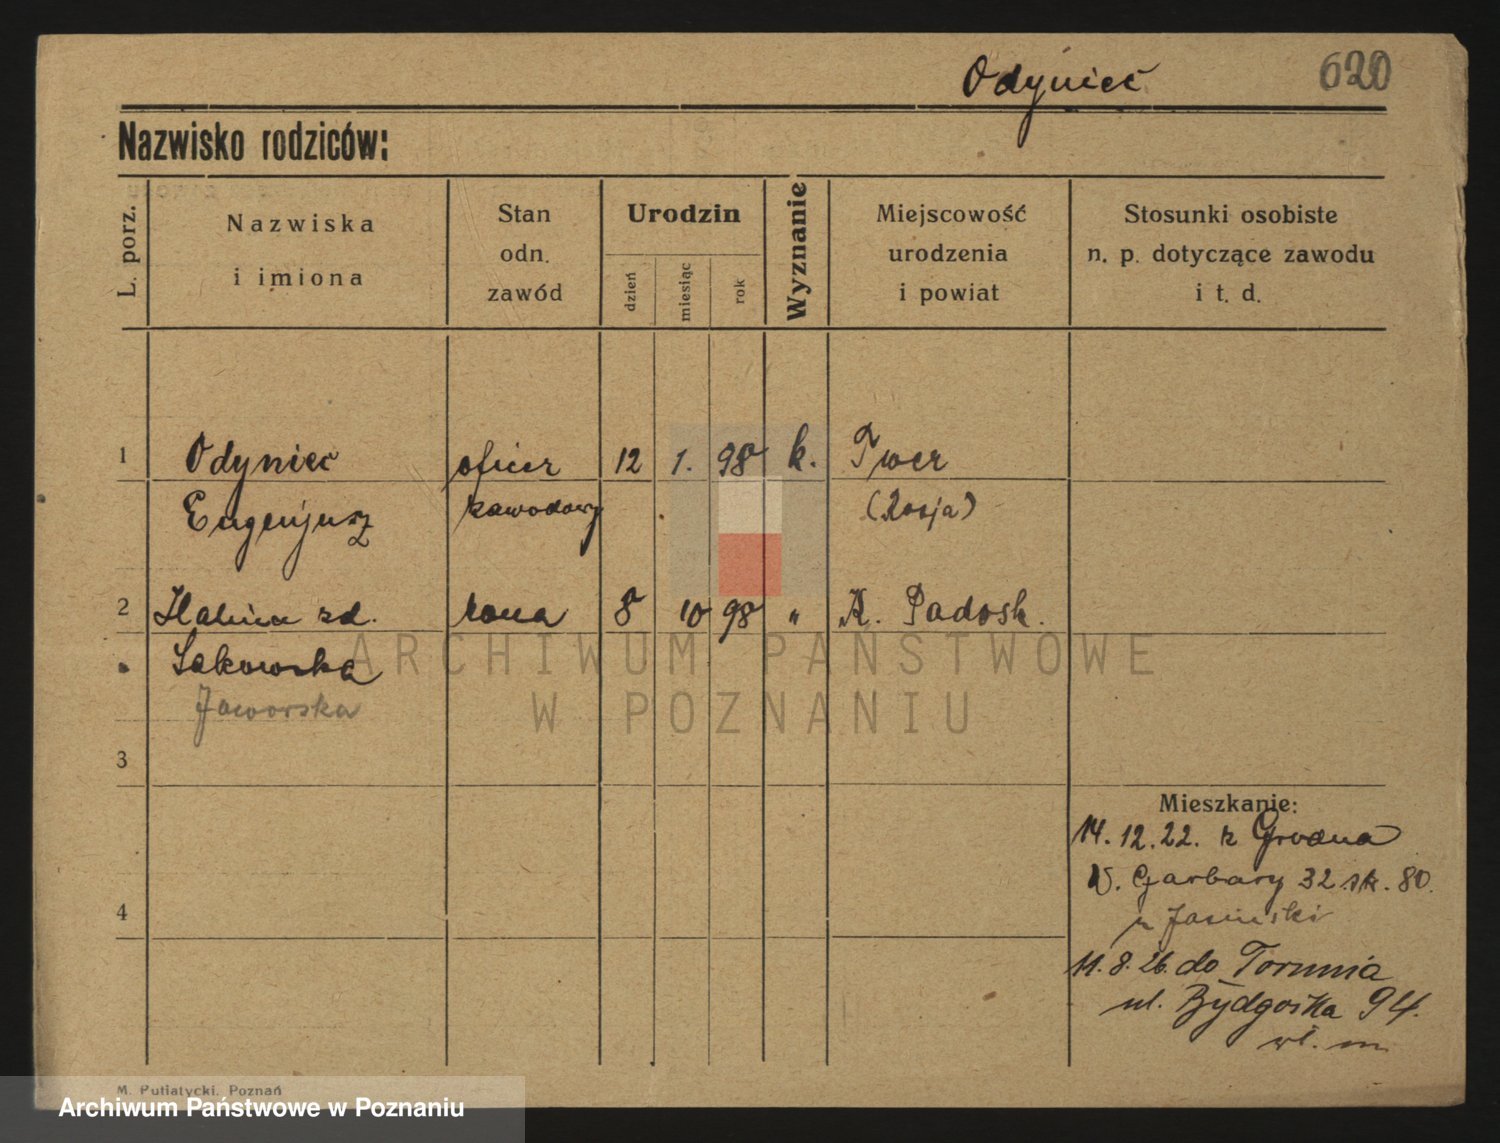 Odynieć
620
Nazwisko rodziców:
L. porz.
Nazwiska
i imiona
Stan
odn.
zawód
Urodzin
dzień
miesiąc
rok
Wyznanie
Miejscowość
urodzenia
i powiat
Stosunki osobiste
n. p. dotyczące zawodu
i t. d.
1 Odynieć oficer 12 1. 98 k. Twer
Eugenjusz zawodowy (Rosja)
2 Halina zd. żona 8 10 98 " K. Padosk.
Sakowska
Jaworska
3
Mieszkanie:
14. 12. 22. z Grodna
W. Garbary 32 sk. 80.
u Jasiński
4
11. 8. 26. do Torunia
ul. Bydgoska 94.
wł. m
M. Putiatycki, Poznań
ARCHIWUM PAŃSTWOWE
W POZNANIU
Archiwum Państwowe w Poznaniu